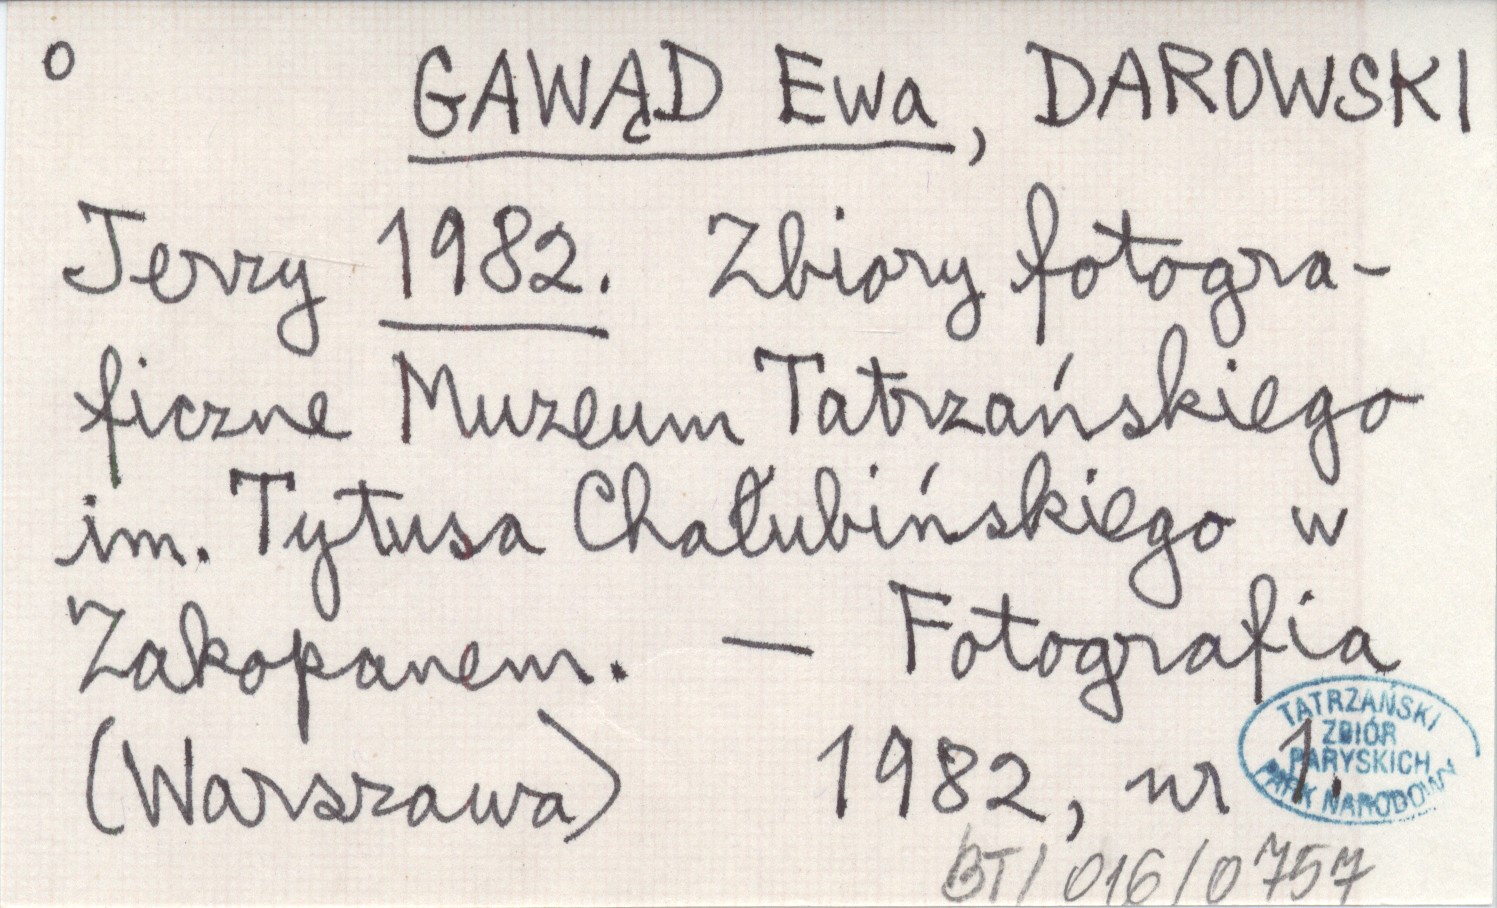 o GAWĄD Ewa, DAROWSKI
Jerzy 1982. Zbiory fotogra-
ficzne Muzeum Tatrzańskiego
im. Tytusa Chałubińskiego w
Zakopanem. — Fotografia
(Warszawa) 1982, nr 1.
TATRZAŃSKI
ZBIÓR
PARYSKICH
PARK NARODOWY
BT/016/0757